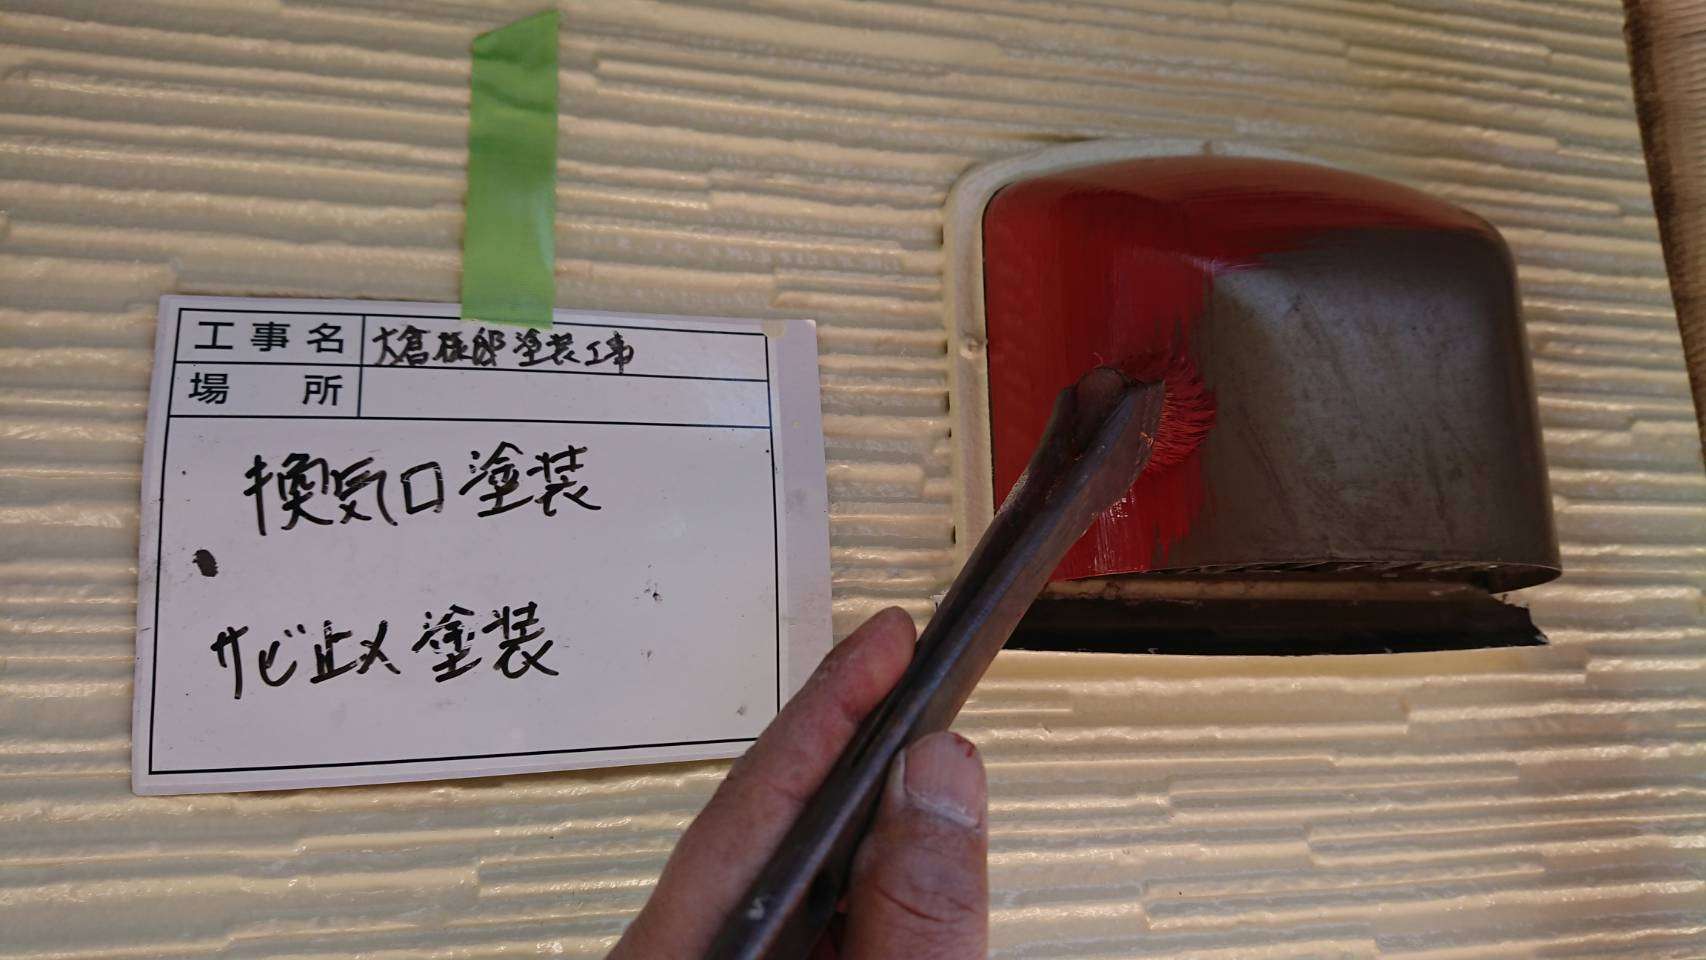 工事名 大倉様邸塗装工事
場所
換気口塗装
サビ止メ塗装